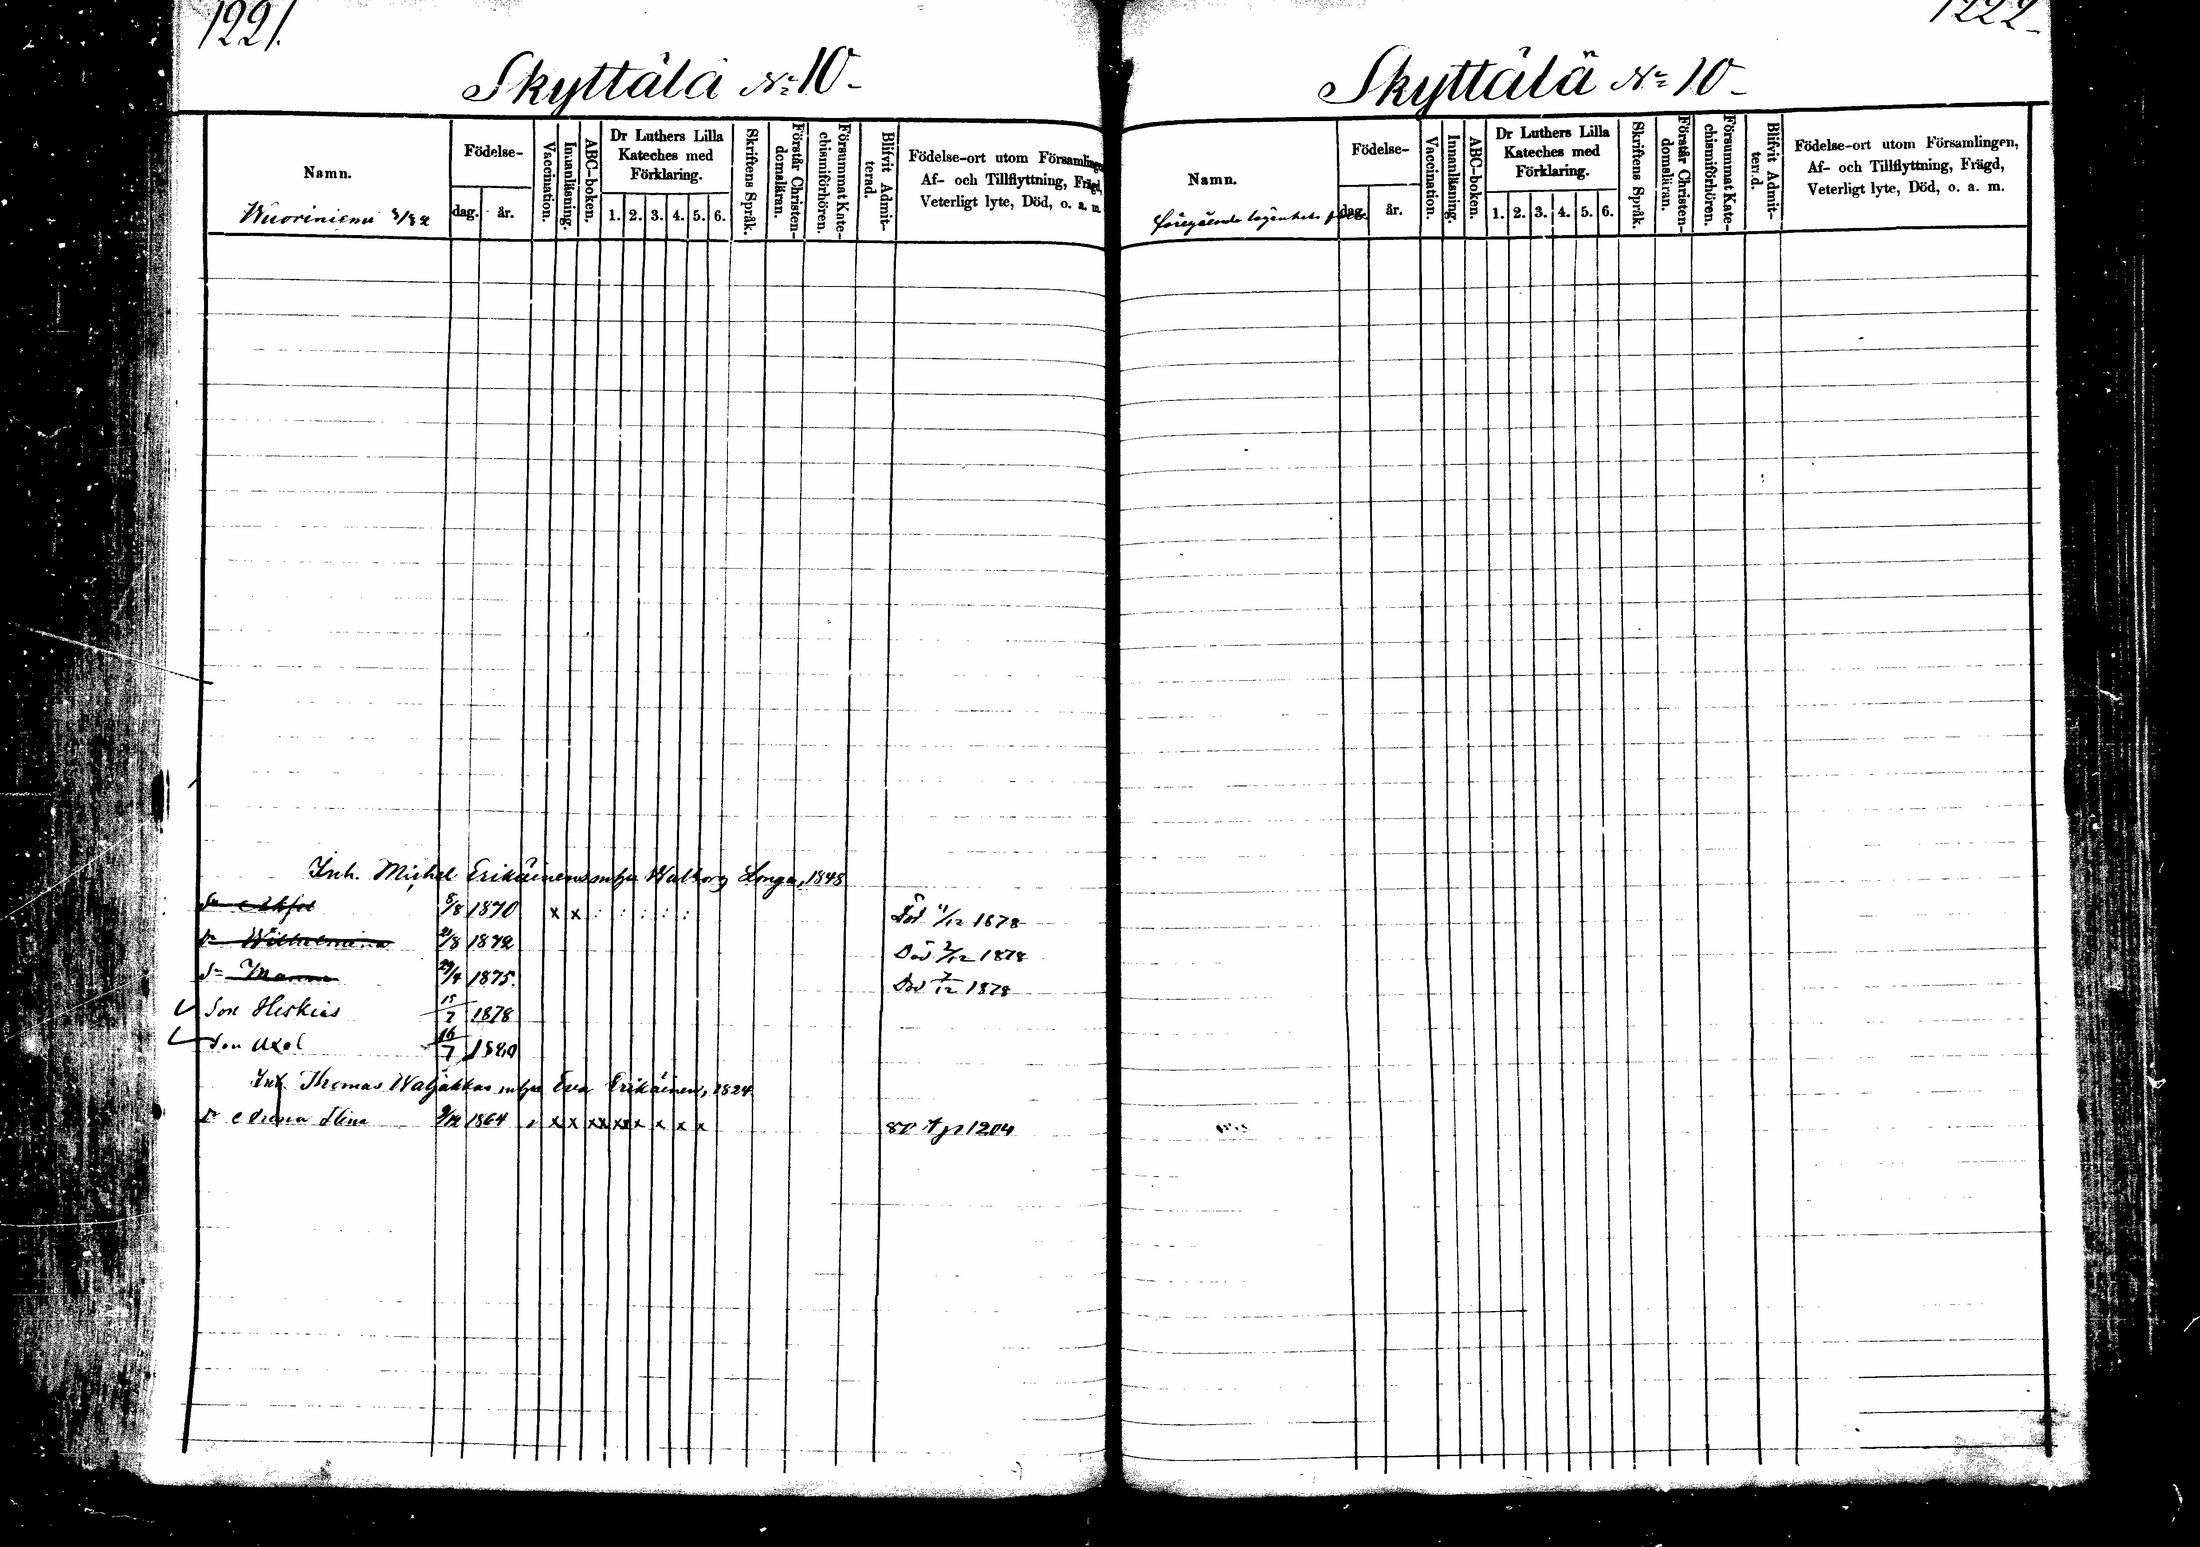 1221.
Skyttälä No 10
Namn.
Wuoriniemi 3/82
Födelse-
dag. år.
Vaccination.
Innanläsning.
ABC-boken.
Dr Luthers Lilla
Kateches med
Förklaring.
1. 2. 3. 4. 5. 6.
Skriftens Språk.
Förstår Christen-
domsläran.
Försummat Kate-
chismiförhören.
Blifvit Admit-
terad.
Födelse-ort utom Församlingen
Af- och Tillflyttning, Frägd,
Veterligt lyte, Död, o. a. m.
Inh. Michel Erikäinens Walborg Longa, 1848
8/8 1870 x x : : : : : Död 11/12 1878
Dr Wilhelmina 21/8 1872 Död 2/12 1878
29/4 1875. Död 7/12 1878
Son Hiskias 15/2 1878
Son Axel 16/7 1880
Inh Thomas Waljakkas Eva Erikäinen, 1824
Dr Stina 9/12 1864 x x xx xxx x x x x 80 p 1204
1222
Skyttälä No 10
Namn.
föregående lägenhets
Födelse-
dag. år.
Vaccination.
Innanläsning.
ABC-boken.
Dr Luthers Lilla
Kateches med
Förklaring.
1. 2. 3. 4. 5. 6.
Skriftens Språk.
Förstår Christen-
domsläran.
Försummat Kate-
chismiförhören.
Blifvit Admit-
terad.
Födelse-ort utom Församlingen,
Af- och Tillflyttning, Frägd,
Veterligt lyte, Död, o. a. m.